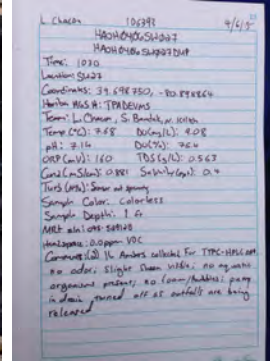 L. Chacon 106393 9/6/2
HAOH0906SW027
HAOH0906SW027DUP
Time: 1030
Location: SW27
Coordinates: 39.698750, -80.848864
Horiba MGS#: TPADEVMS
Team: L. Chacon, S. Bandak, N.
Temp (°C): 7.68 DO(mg/L): 9.08
pH: 7.14 DO(%): 76.4
ORP (mV): 160 TDS (g/L): 0.563
Cond (mS/cm): 0.881 Salinity (ppt): 0.4
Turb (NTU): Sensor not
Sample Color: colorless
Sample Depth: 1 ft
MRL
Headspace: 0.0 ppm VOC
Comments: (2) 1L Ambers collected for
no odor, slight sheen visible, no aquatic
organisms present, no foam/bubbles; pump
turned off as outfalls are being
released